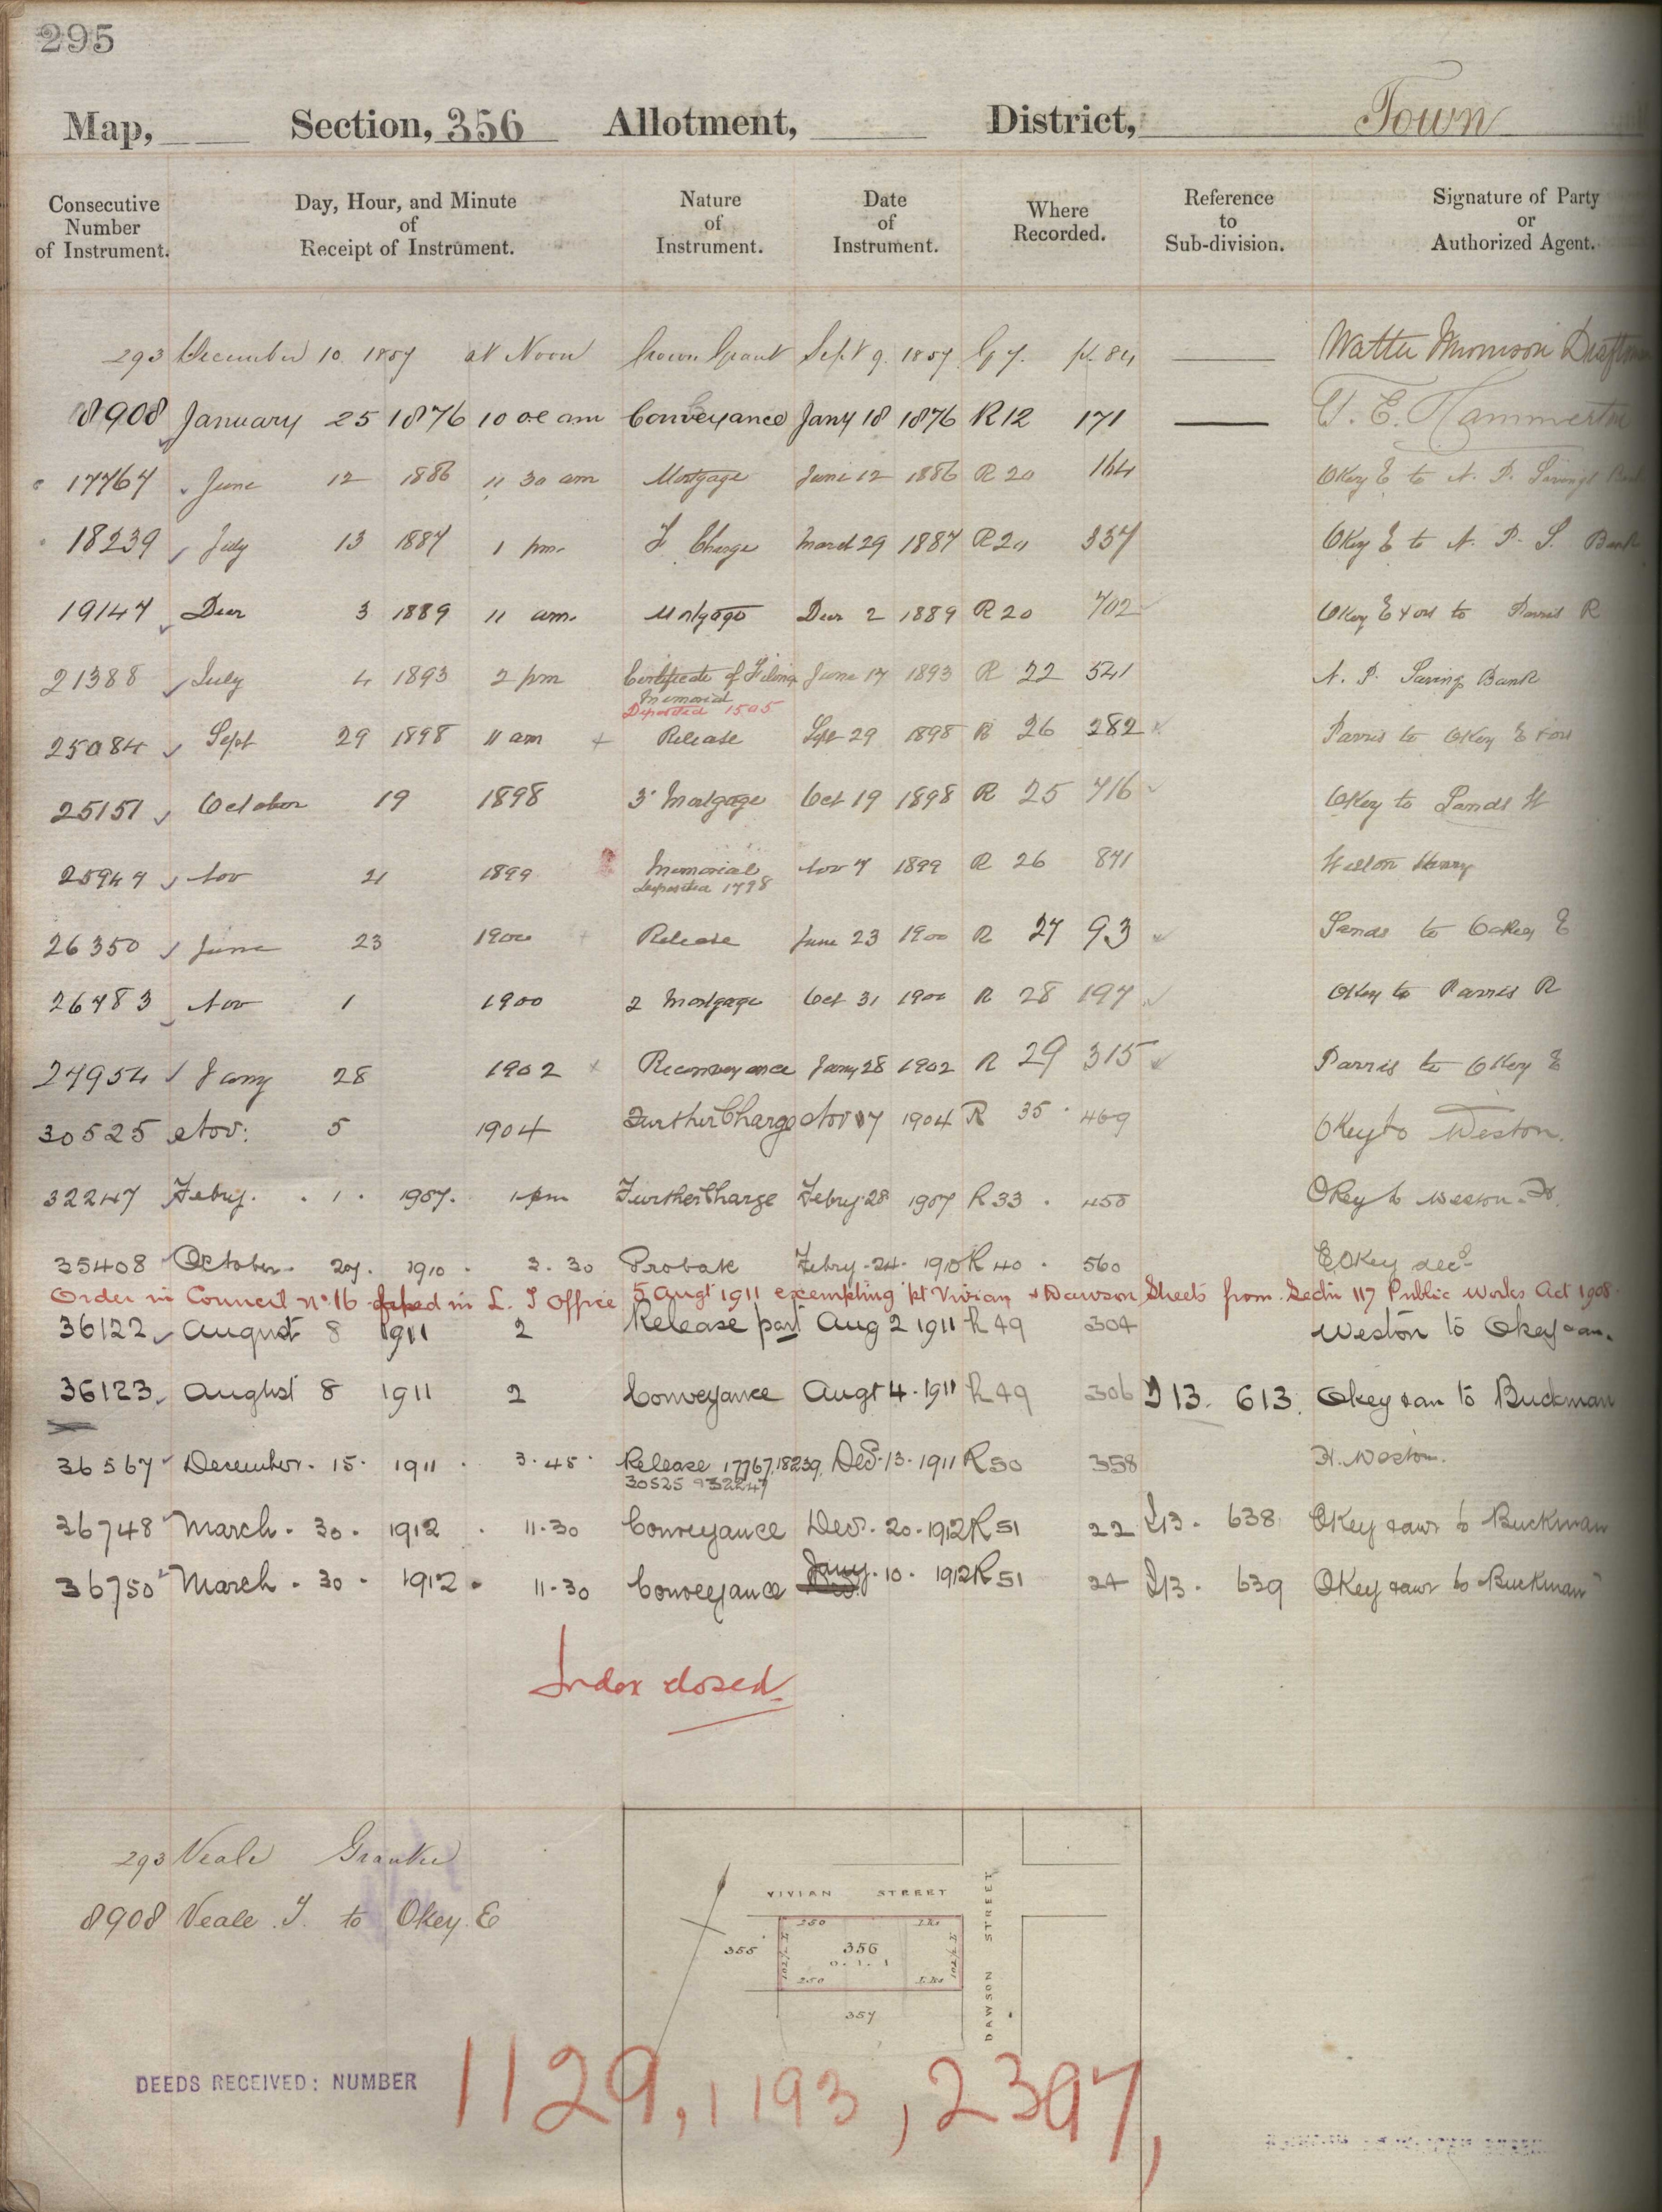 295
Map, Section, 356 Allotment, District, Town
Consecutive Number of Instrument. Day, Hour, and Minute of Receipt of Instrument. Nature of Instrument. Date of Instrument. Where Recorded. Reference to Sub-division. Signature of Party or Authorized Agent.
293 December 10. 1857 at Noon Crown Grant Sept 9. 1857. G 7. p. 84 Walter Morrison Draftsman
8908 January 25 1876 10 oc am Conveyance Jany 18 1876 R 12 171 T. E. Hammerton
17767 June 12 1886 11 30 am Mortgage June 12 1886 R 20 164 Okey E to N. P. Savings Bank
18239 July 13 1887 1 pm. F Charge March 29 1887 R 20 337 Okey E to N. P. S. Bank
19147 Decr 3 1889 11 am. Mortgage Decr 2 1889 R 20 702 Okey E & ors to Parris R
21388 July 4 1893 2 pm Certificate of Filing June 17 1893 R 22 541 N. P. Saving Bank
Memorial
Deposited 1505
25084 Sept 29 1898 11 am Release Sept 29 1898 R 26 282 Parris to Okey E & ors
25151 October 19 1898 3d Mortgage Oct 19 1898 R 25 716 Okey to Sands H
25949 Nov 21 1899 Memorial Nov 7 1899 R 26 871 Weston Henry
Deposited 1798
26350 June 23 1900 Release June 23 1900 R 27 93 Sands to Okey E
26783 Nov 1 1900 2 Mortgage Oct 31 1900 R 28 197 Okey to Parris R
27954 Jany 28 1902 Reconveyance Jany 28 1902 R 29 315 Parris to Okey E
30525 Nov: 5 1904 Further Charge Nov 7 1904 R 35 469 Okey to Weston.
32247 Febry. 1. 1907. 1 pm Further Charge Febry 28 1907 R 33. 450 Okey to Weston. H.
35408 October. 27. 1910. 3. 30 Probate Febry. 24. 1910 R 40. 560 E. Okey decd
Order in Council No. 16 in L. T Office 5 Augt 1911 exempting pt Vivian & Dawson Streets from Sectn 117 Public Works Act 1908.
36122 August 8 1911 2 Release part Aug 2 1911 R 49 304 Weston to Okey & an.
36123 August 8 1911 2 Conveyance Augt 4. 1911 R 49 306 I 13. 613. Okey & an to Buckman
36567 December. 15. 1911. 3. 45. Release 17767, 18239, Dec. 13. 1911 R 50 358 H. Weston.
30525 & 32247
36748 March. 30. 1912. 11.30 Conveyance Decr. 20. 1912 R 51 22 I 13. 638 Okey & anr to Buckman
36750 March. 30. 1912. 11.30 Conveyance Jany. 10. 1912 R 51 24 I 13. 639 Okey & anr to Buckman
Index closed
293 Veale Grantee
8908 Veale. J. to Okey. E
VIVIAN STREET
DAWSON STREET
250
355
356
0. 1. 1
250
357
DEEDS RECEIVED: NUMBER 1129, 1193, 2397,